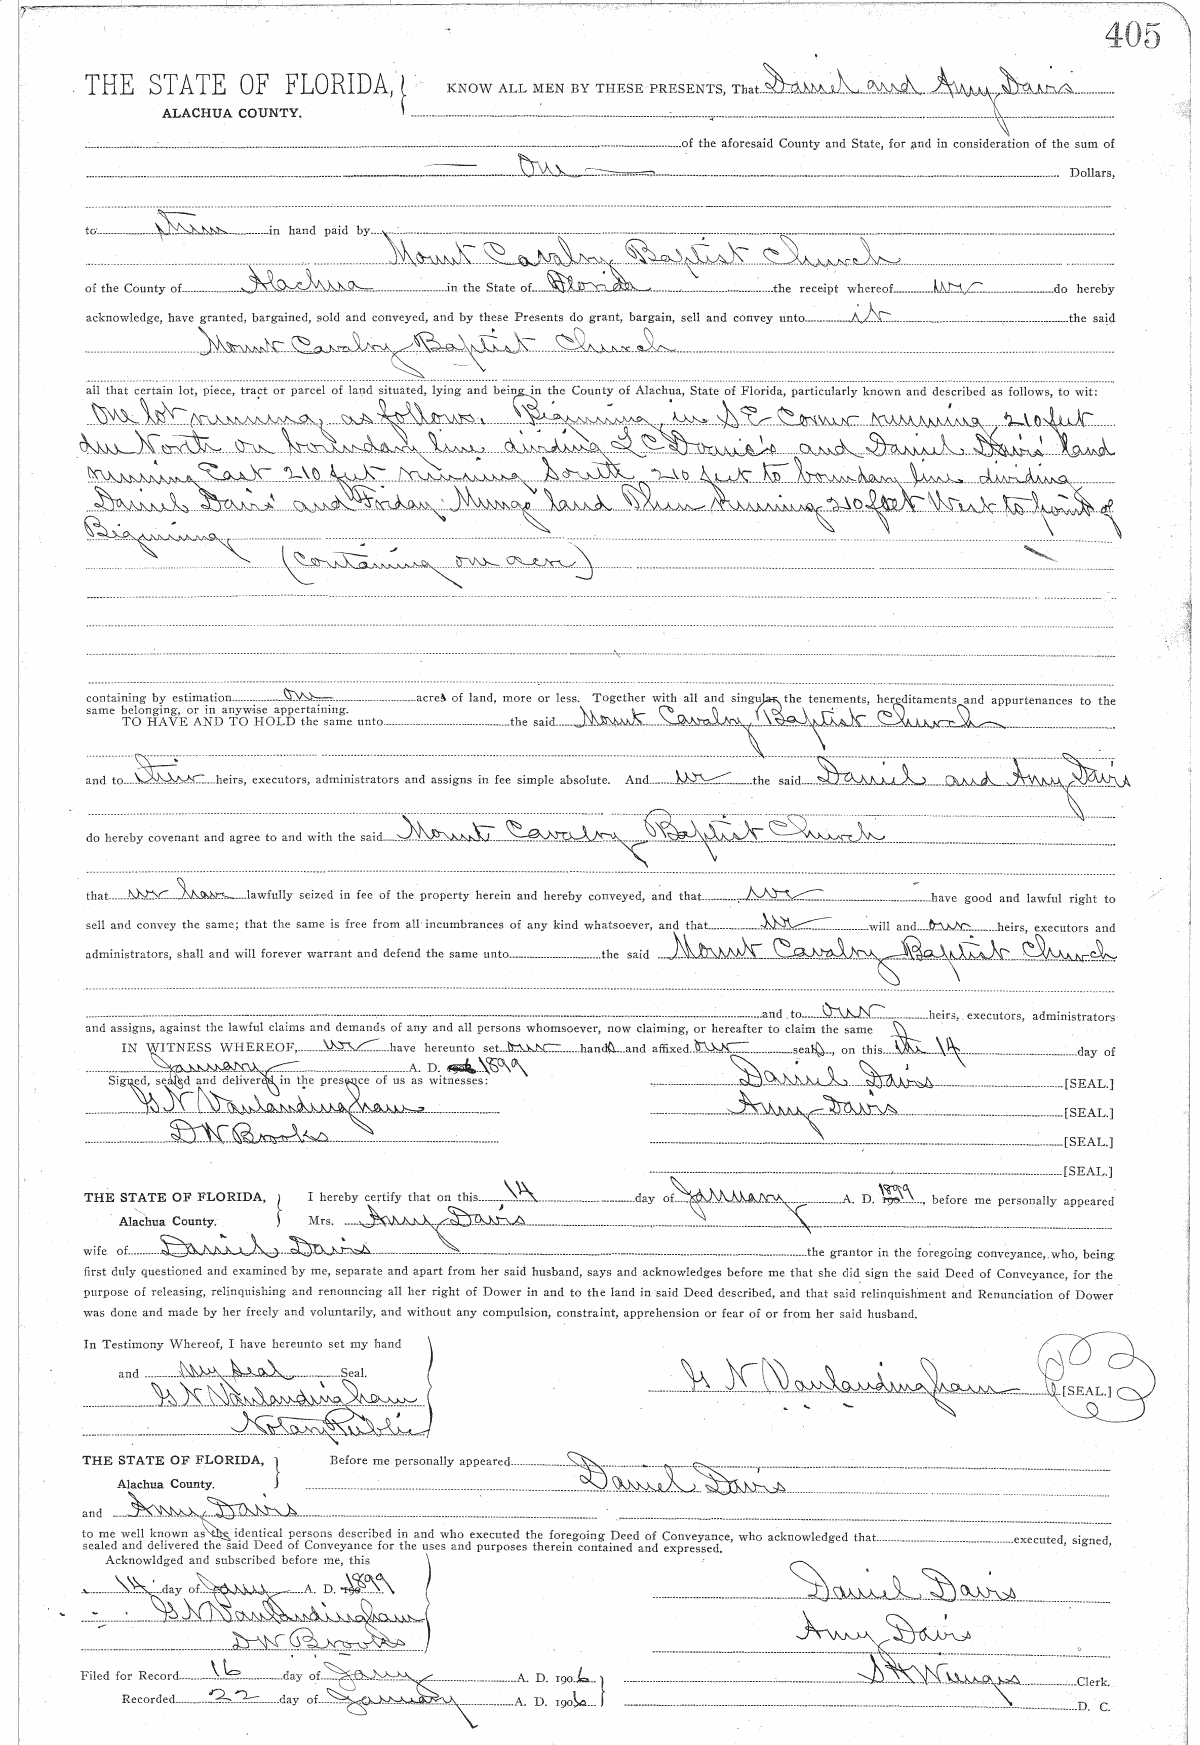 405
THE STATE OF FLORIDA, KNOW ALL MEN BY THESE PRESENTS, That Daniel and Amy Davis
ALACHUA COUNTY.
of the aforesaid County and State, for and in consideration of the sum of
One Dollars,
to them in hand paid by
Mount Cavalry Baptist Church
of the County of Alachua in the State of Florida the receipt whereof we do hereby
acknowledge, have granted, bargained, sold and conveyed, and by these Presents do grant, bargain, sell and convey unto it the said
Mount Cavalry Baptist Church
all that certain lot, piece, tract or parcel of land situated, lying and being in the County of Alachua, State of Florida, particularly known and described as follows, to wit:
One lot running as follows. Biginning in S E Corner running 210 feet
due North on boundary line dividing L C and Daniel Davis' land
running East 210 feet running South 210 feet to boundary line dividing
Daniel Davis' and Friday Mungo land Then running 210 feet West to point of
Biginning
(Containing one acre)
containing by estimation one acres of land, more or less. Together with all and singular the tenements, hereditaments and appurtenances to the
same belonging, or in anywise appertaining.
TO HAVE AND TO HOLD the same unto the said Mount Cavalry Baptist Church
and to their heirs, executors, administrators and assigns in fee simple absolute. And we the said Daniel and Amy Davis
do hereby covenant and agree to and with the said Mount Cavalry Baptist Church
that we have lawfully seized in fee of the property herein and hereby conveyed, and that we have good and lawful right to
sell and convey the same; that the same is free from all incumbrances of any kind whatsoever, and that we will and our heirs, executors and
administrators, shall and will forever warrant and defend the same unto the said Mount Cavalry Baptist Church
and to our heirs, executors, administrators
and assigns, against the lawful claims and demands of any and all persons whomsoever, now claiming, or hereafter to claim the same
IN WITNESS WHEREOF, we have hereunto set our hands and affixed our seals, on this the 14 day of
January A. D. 1899
Signed, sealed and delivered in the presence of us as witnesses: Daniel Davis [SEAL.]
G N Vanlandingham Amy Davis [SEAL.]
D W Brooks [SEAL.]
[SEAL.]
THE STATE OF FLORIDA, I hereby certify that on this 14 day of January A. D. 1899, before me personally appeared
Alachua County. Mrs. Amy Davis
wife of Daniel Davis the grantor in the foregoing conveyance, who, being
first duly questioned and examined by me, separate and apart from her said husband, says and acknowledges before me that she did sign the said Deed of Conveyance, for the
purpose of releasing, relinquishing and renouncing all her right of Dower in and to the land in said Deed described, and that said relinquishment and Renunciation of Dower
was done and made by her freely and voluntarily, and without any compulsion, constraint, apprehension or fear of or from her said husband.
In Testimony Whereof, I have hereunto set my hand
and My Seal Seal. G N Vanlandingham [SEAL.]
G N Vanlandingham
Notary Public
THE STATE OF FLORIDA, Before me personally appeared
Alachua County. Daniel Davis
and Amy Davis
to me well known as the identical persons described in and who executed the foregoing Deed of Conveyance, who acknowledged that executed, signed,
sealed and delivered the said Deed of Conveyance for the uses and purposes therein contained and expressed.
Acknowldged and subscribed before me, this
14 day of Jany A. D. 1899 Daniel Davis
G N Vanlandingham
D W Brooks Amy Davis
Filed for Record 16 day of Jany A. D. 1906 S H Wienges Clerk.
Recorded 22 day of January A. D. 1906 D. C.